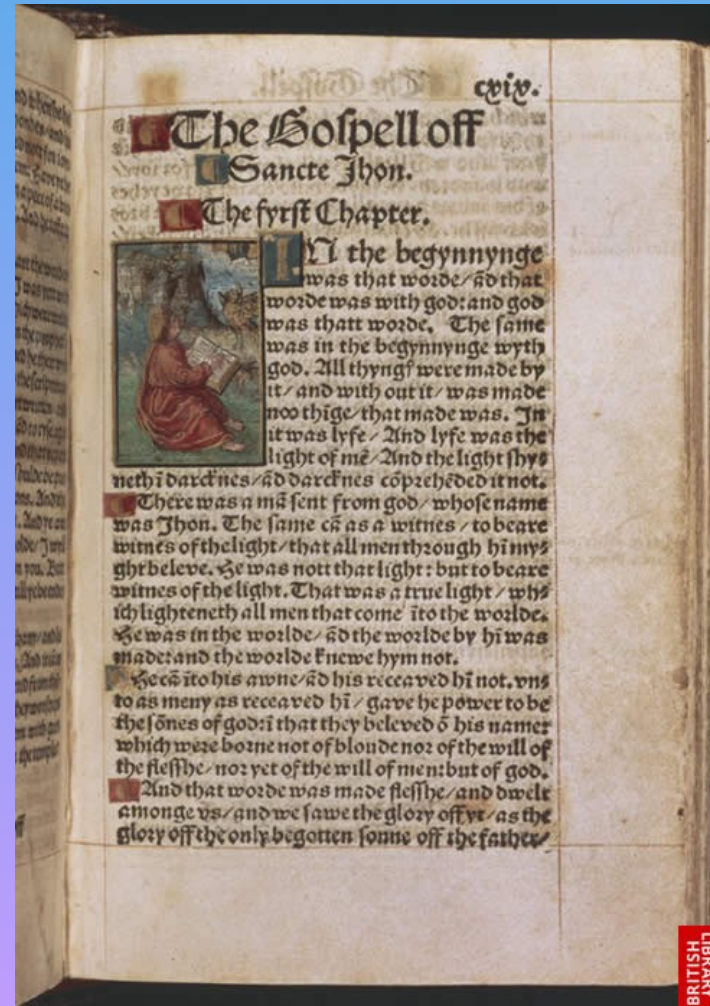 cxix.
The Gospell off
Sancte Jhon.
The fyrst Chapter.
IN the begynnynge
was that worde/ ād that
worde was with god: and god
was thatt worde. The same
was in the begynnynge wyth
god. All thyngꝭ were made by
it/ and with out it/ was made
noo thīge/ that made was. In
it was lyfe/ And lyfe was the
light of mē/ And the light shy⸗
neth ī darcknes/ ād darcknes cōprehēded it not.
There was a mā sent from god/ whose name
was Jhon. The same cā as a witnes/ to beare
witnes of the light/ that all men through hī my⸗
ght beleve. He was nott that light: but to beare
witnes of the light. That was a true light/ wh⸗
ich lighteneth all men that come īto the worlde.
He was in the worlde/ ād the worlde by hī was
made: and the worlde knewe hym not.
He cā īto his awne/ ād his receaved hī not. vn⸗
to as meny as receaved hī/ gave he power to be
the sōnes of god: ī that they beleved ō his name:
which were borne not of bloude nor of the will of
the flesshe/ nor yet of the will of men: but of god.
And that worde was made flesshe/ and dwelt
amonge vs/ and we sawe the glory off yt/ as the
glory off the only begotten sonne off the father/
BRITISH
LIBRARY